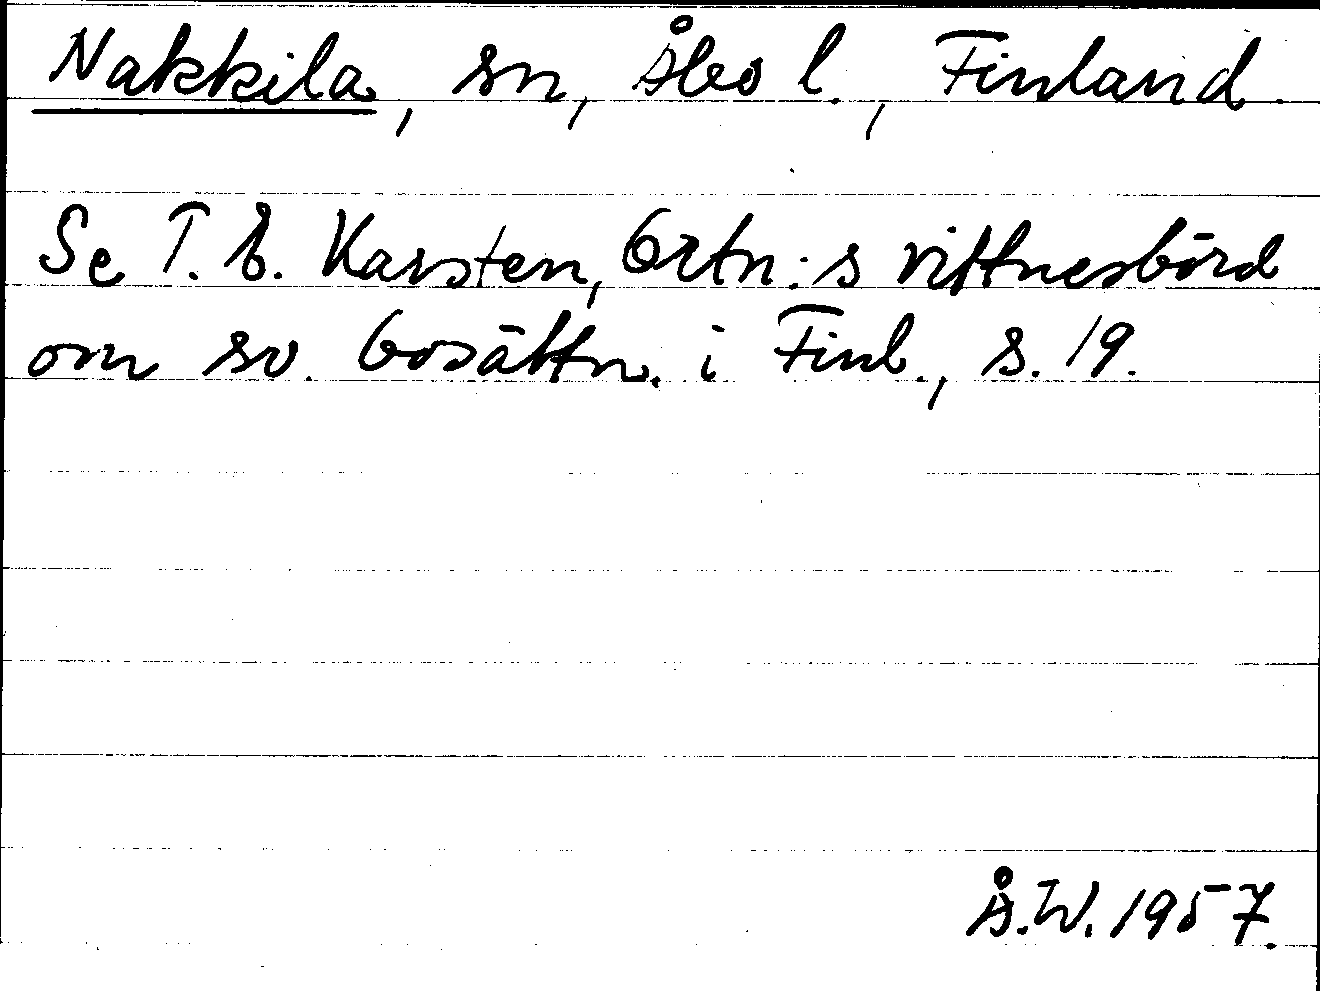 Nakkila, sn, Åbo l., Finland.
Se T. E. Karsten, Ortn:s vittnesbörd
om sv. bosättn. i Finl., s. 19.
Å.W. 1957.